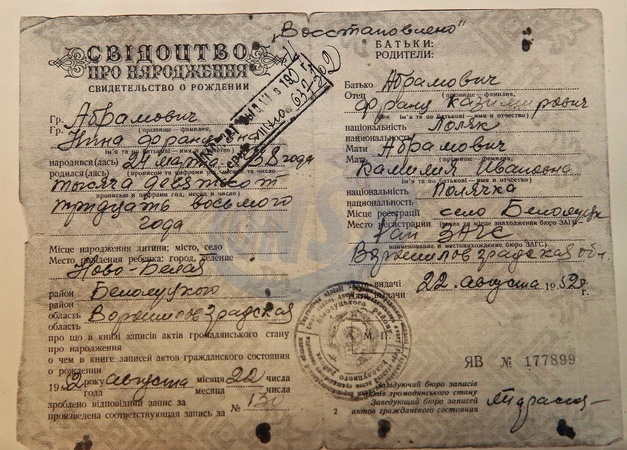 „Восстановлено"
СВІДОЦТВО
ПРО НАРОДЖЕННЯ
СВИДЕТЕЛЬСТВО О РОЖДЕНИИ
Гр. Абрамович
Гр. (прізвище — фамилия,
Нина
ім'я та по батькові — имя и отчество)
народився(лась) 24 марта 1938 года
родился(лась) (прописом и цифрами
тысяча девятсот
прописью и цифрами год, месяц и число)
тридцать восьмого
года
Місце народження дитини: місто, село
Место рождения ребенка: город, селение
Ново-Белая
район Белолуцкого
район
область Ворошиловградская
область
про що в книзі записів актів громадянського стану
про народження
о чем в книге записей актов гражданского состояния
о рождении
1952 року августа місяця 22 числа
года месяца числа
зроблено відповідний запис за
произведена соответствующая запись за №
БАТЬКИ:
РОДИТЕЛИ:
Батько Абрамович
Отец (прізвище — фамилия,
Франц Казимирович
ім'я та по батькові — имя и отчество)
національність Поляк
национальность
Мати Абрамович
Мать (прізвище — фамилия,
Камилия Ивановна
ім'я та по батькові — имя и отчество)
національність Полячка
национальность
Місце реєстрації село Белолуцк
Место регистрации
Рай ЗАГС
наименование и местонахождение бюро ЗАГС)
Ворошиловградская обл.
видачі 22 августа 1952 г.
выдачи
М. П.
ЯВ № 177899
Завідуючий бюро записів
актів громадянського стану
Заведующий бюро записей
актов гражданского состояния
2